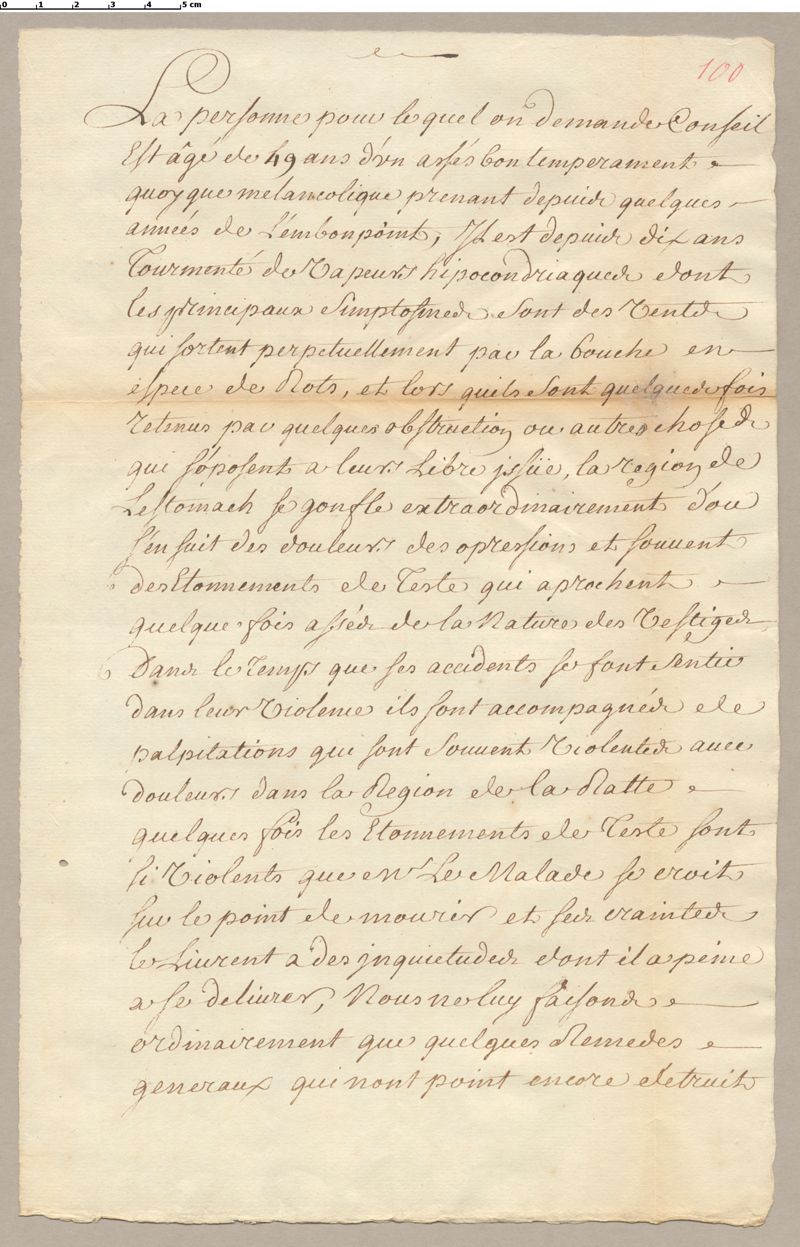 0 1 2 3 4 5 cm
100
La personne pour lequel on demande Conseil
Est âgé de 49 ans d'vn assés bon temperament
quoy que mélancolique prenant depuis quelques
années de L'embonpoint, Il est depuis dix ans
Tourmenté de Vapeurs hipocondriaques dont
les principaux Simptosmes sont des Vents
qui sortent perpetuellement par la bouche en
espece de Rots, et lors quils sont quelques fois
retenus par quelques obstruction ou autres choses
qui s'oposent a leurs Libre jssüe, la region de
Lestomach se gonfle extraordinairement d'ou
s'en suit des douleurs des opressions et souuent
des Etonnements de Teste qui aprochent
quelque fois assés de la Nature des Vestiges
Dans le Temps que ses accidents se font sentir
dans leur Violence ils sont accompagnés de
palpitations qui sont souuent Violentes auec
douleurs dans la Region de la Ratte
quelques fois les Etonnements de Teste sont
si Violents que Mr Le Malade se croit
sur le point de mourir et ses craintes
le Liurent a des jnquietudes dont il a peine
a se deliurer, Nous ne luy faisons
ordinairement que quelques Remedes
generaux qui nont point encore detruit